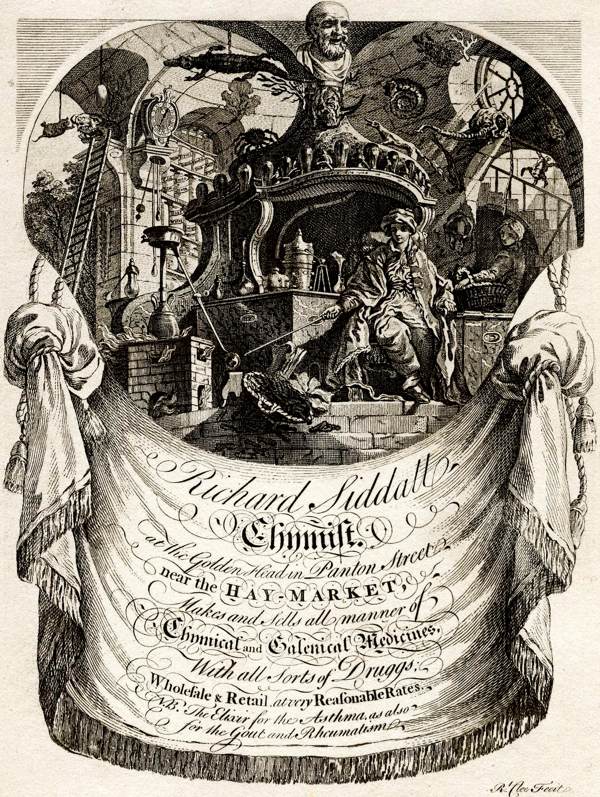 Richard Siddall
Chymist.
at the Golden Head in Panton Street
near the HAY-MARKET,
Makes and Sells all manner of
Chymical and Galenical Medicines,
With all Sorts of Druggs;
Wholesale & Retail, at very Reasonable Rates.
N.B. The Elixir for the Asthma, as also
for the Gout and Rheumatism
R. Clee Fecit